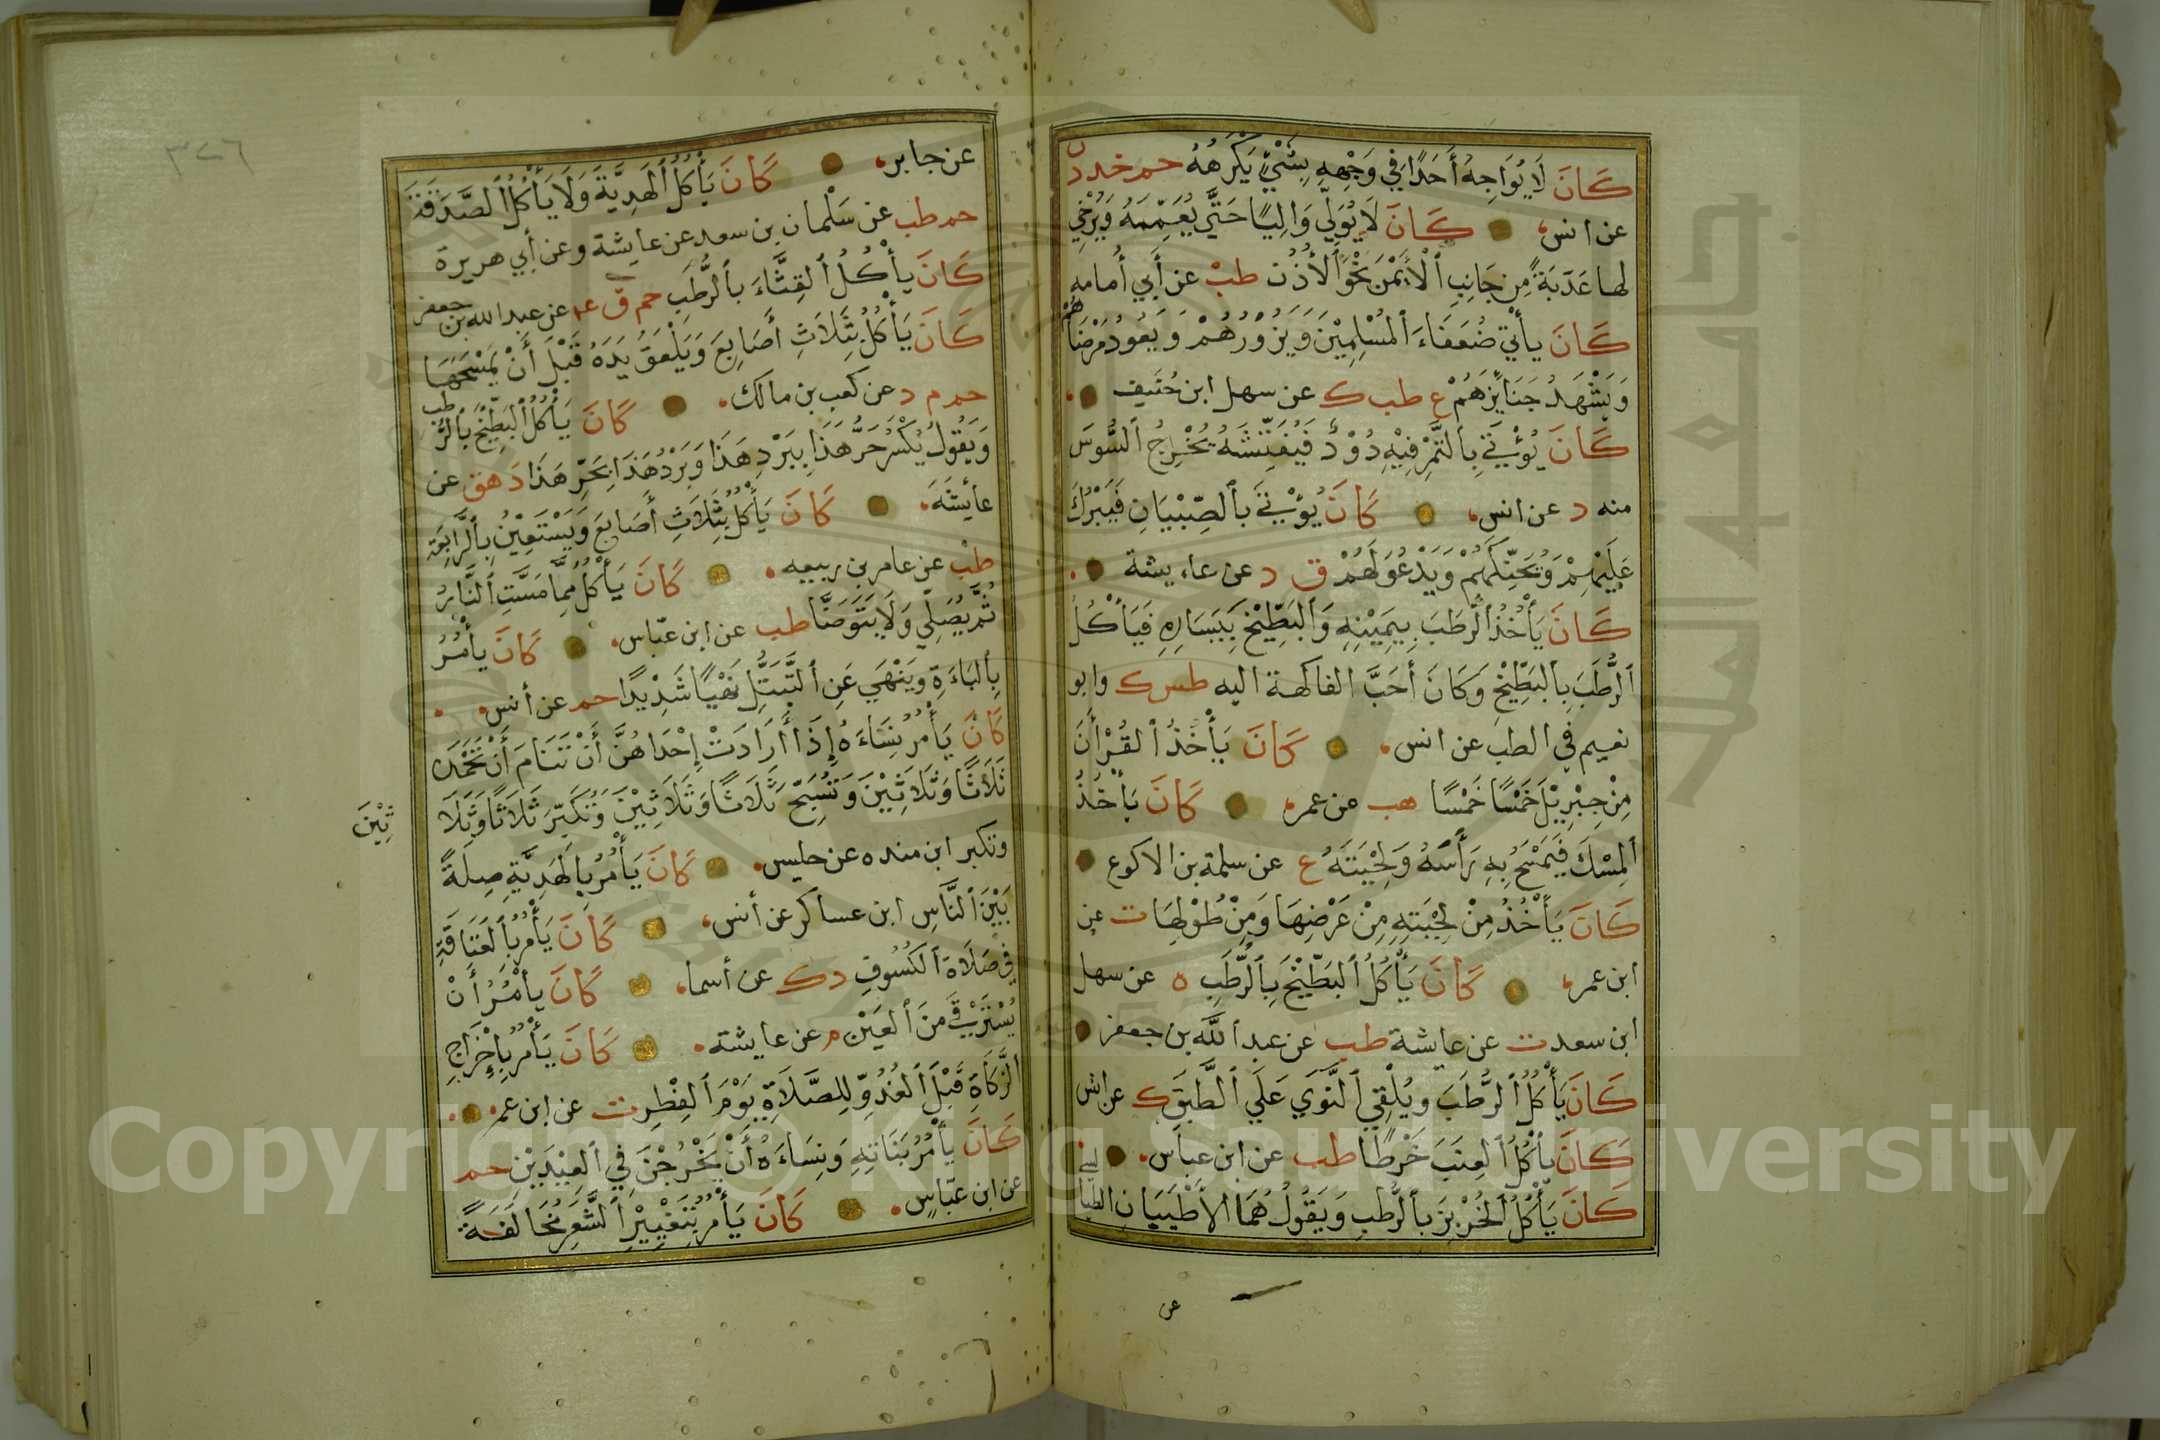 كَانَ لَا يُوَاجِهُ أَحَدًا فِي وَجْهِهِ بِشَيْءٍ يَكْرَهُهُ حم خد د ن
عن انس، كَانَ لَا يُوَلِّي وَالِيًا حَتَّى يُعَمِّمَهُ وَيُرْخِي
لها عَذَبَةً مِن جَانِبِ ٱلْأَيْمَنِ نَحْوَ ٱلأُذُنِ طب عن أَبي أُمامه
كَانَ يأتي ضُعَفَاءَ ٱلمُسْلِمِيْنَ وَيَزُوْرُهُمْ وَيَعُودُ مَرْضَاهُمْ
وَيَشْهَدُ جَنَايِزَهُمْ ع طب ك عن سهل ابن حُنَيف
كَانَ يُؤْتي بِالتَّمْرِ فِيْهِ دُوْدٌ فَيُفَتِّشَهُ يُخْرِجُ ٱلسُّوسَ
منه د عن انس، كَانَ يُؤْتي بٱلصِّبْيَانِ فَيُبَرِّكُ
عَلَيْهِمْ وَيُحَنِّكُهُمْ وَيَدْعُو لَهُمْ ق د عن عايشة
كَانَ يَأْخُذُ ٱلرُّطَبَ بِيَمِيْنِهِ وَٱلبَطِّيْخَ بِيَسَارِهِ فَيَأْكُلُ
ٱلرُّطَبَ بِٱلبَطِّيْخِ وَكَانَ أَحَبَّ الفاكهة اليه طس ك وابو
نعيم في الطب عن انس، كَانَ يَأْخُذُ ٱلقُرْأَنَ
مِنْ جِبْرِيْلَ خَمْسًا خَمْسًا هب عن عمر، كَانَ يَأْخُذُ
ٱلمِسْكَ فَيَمْسَحُ بِهِ رَأْسَهُ وَلِحْيَتَهُ ع عن سلمة بن الاكوع
كَانَ يَأْخُذُ مِنْ لِحْيَتِهِ مِنْ عَرْضِهَا وَمِنْ طُوْلِهَا ت عن
ابن عمر، كَانَ يَأْكُلُ ٱلبَطِّيْخَ بِٱلرُّطَبِ ه عن سهل
ابن سعد ت عن عايشة طب عن عبد ٱللّه بن جعفر
كَانَ يَأْكُلُ ٱلرُّطَبَ ويُلْقِي ٱلنَّوَي عَلَي ٱلطَّبَقِ ك عن انس
كَانَ يأْكُلُ ٱلعِنَبَ خَرْطًا طب عن ابن عباس
كَانَ يَأْكُلُ ٱلخِرْبِزَ بٱلرُّطَبِ وَيَقُولُ هُمَا الأَطْيَبَانِ الطيا لسي
عن
٣٢٦
عن جابر، كَانَ يَأْكُلُ ٱلهَدِيَّةَ وَلَا يَأْكُلُ ٱلصَّدَقَةَ
حم طب عن سَلْمان بن سعد عن عايشة وعن أبي هريرة
كَانَ يأْكُلُ ٱلقِثَّاءَ بٱلرُّطَبِ حم ق عه عن عبد الله بن جعفر
كَانَ يَأْكُلُ بِثَلَاثِ أَصَابِعَ وَيَلْعَقُ يَدَهُ قَبْلَ أَنْ يَمْسَحَهَا
حم م د عن كعب بن مالك، كَانَ يَأْكُلُ ٱلبَطِّيْخَ بِٱلرُّطب
وَيَقُولُ يُكْسَرُ حَرُّ هَذَا بِبَرْدِ هَذَا وَبَرْدُ هَذَا بِحَرِّ هَذَا د هق عن
عائشَةَ، كَانَ يَأْكُلُ بِثَلَاثِ أَصَابِعَ وَيَسْتَعِيْنُ بِٱلرَّابِعَةِ
طب عن عامر بن ربيعه، كَانَ يَأْكُلُ مِمَّا مَسَّتِ ٱلنَّارُ
ثُمَّ يُصَلِّي وَلَا يَتَوَضَّأُ طب عن ابن عبّاس، كَانَ يأمُرُ
بِٱلبَاءَةِ وَيَنْهَي عَنِ ٱلتَّبَتُّلِ نَهْيًا شَدِيْدًا حم عن أنس،
كَانَ يَأْمُرُ نِسَاءَهُ إِذَا أَرَادَتْ إِحْدَاهُنَّ أَنْ تَنَامَ أَنْ تَحْمَدَ
ثَلَاثًا وَثَلَاثِيْنَ وَتُسَبِّحَ ثَلَاثًا وَثَلَاثِيْنَ وَتُكَبِّرَ ثَلَاثًا وَثَلَا
ثِيْنَ
وتكبر ابن منده عن حليس، كَانَ يَأْمُرُ بِالهَدِيَّةِ صِلَةً
بَيْنَ ٱلنَّاسِ ابن عساكر عن أنس، كَانَ يَأْمُرُ بِٱلعَتَاقَةِ
في صَلَاة ٱلكُسُوفِ د ك عن أسما، كَانَ يأمُرُ أَنْ
يُسْتَرْقَي مِنَ ٱلعَيْنِ م عن عايشته، كَانَ يَأْمُرُ بِإِخْرَاجِ
ٱلزَّكَاةِ قَبْلَ ٱلغُدُوِّ لِلصَّلَاةِ يَوْمَ ٱلفِطْرِ ت عن ابن عمر،
كَانَ يَأْمُرُ بَنَاتِهِ وَنِسَاءَهُ أَنْ يَخْرُجْنَ فِي ٱلعِيْدَيْنِ حم
عن ابن عبّاسٍ، كَانَ يَأْمُرُ بِتَغْيِيْرِ ٱلشَّعَرِ مُخَالَفَةً
Copyright © King Saud University